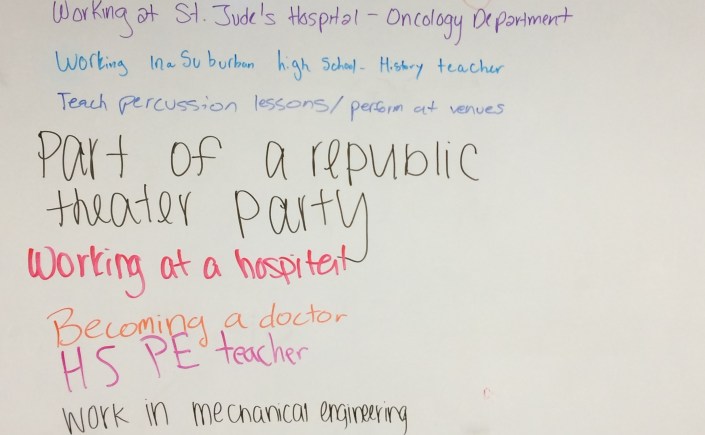 Working at St. Jude's Hospital - Oncology Department
Working In a Suburban high School - History teacher
Teach percussion lessons/ perform at venues
Part of a republic
theater party
Working at a hospital
Becoming a doctor
HS PE teacher
Work in mechanical engineering